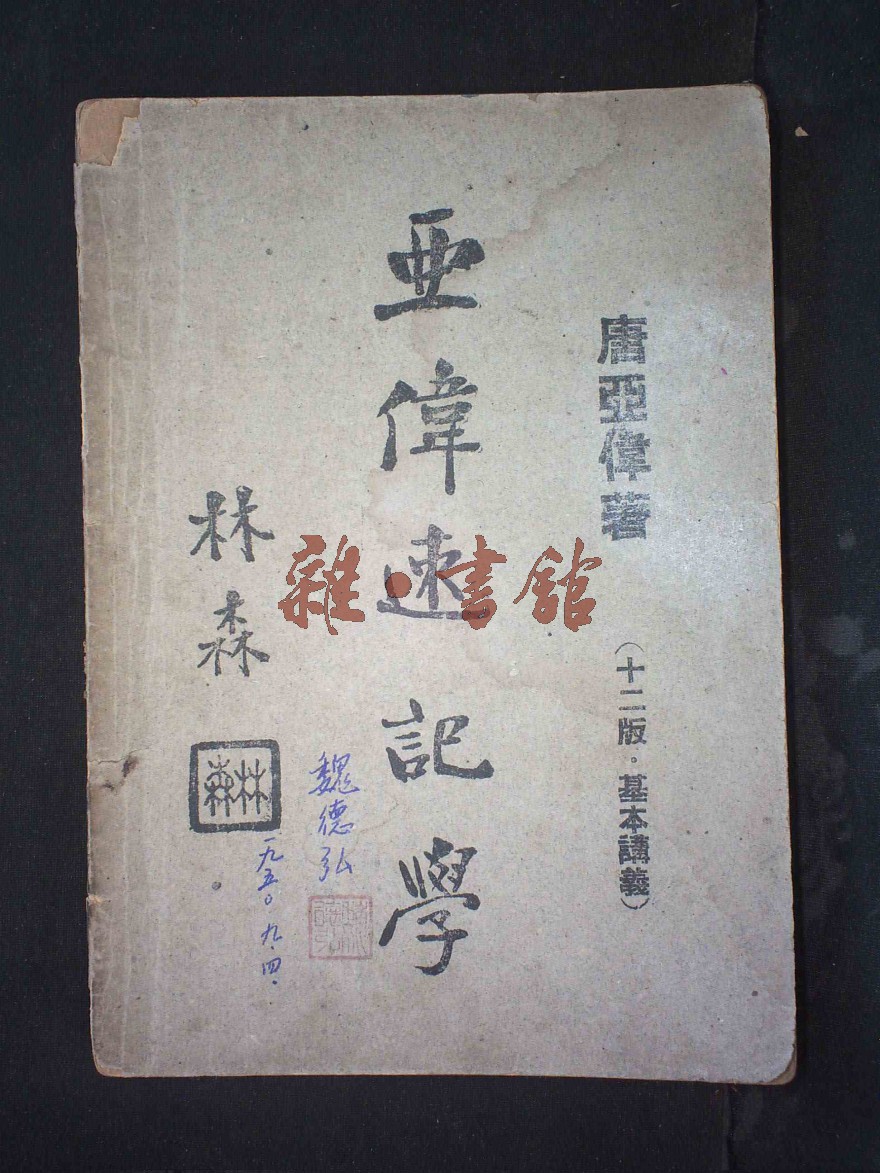 唐亞偉著
（十二版·基本講義）
亞偉速記學
林森
林森
魏德弘
一九五〇.九.四.
雜·書館